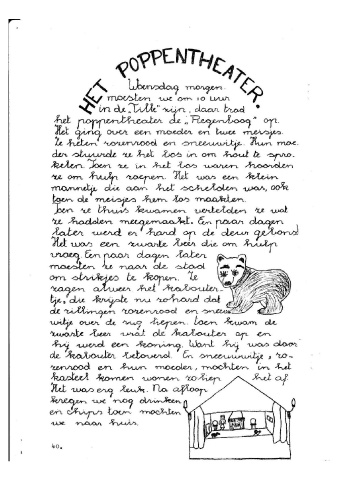 HET POPPENTHEATER.
Woensdag morgen
moesten we om 10 uur
in de "Tille" zijn, daar trad
het poppentheater de "Regenboog" op.
Het ging over een moeder en twee meisjes.
Ze heten rozenrood en sneeuwitje. Hun moe-
der stuurde ze het bos in om hout te spro-
kelen. Toen ze in het bos waren hoorden
ze om hulp roepen. Het was een klein
mannetje die aan het schelden was, ook
toen de meisjes hem los maakten.
Toen ze thuis kwamen vertelden ze wat
ze hadden meegemaakt. Een paar dagen
later werd er hard op de deur gebonsd
Het was een zwarte beer die om hulp
vroeg. Een paar dagen later
moesten ze naar de stad
om strikjes te kopen. Ze
zagen alweer het kabouter-
tje, die krijste nu zo hard dat
de rillingen rozenrood en sneeu
witje over de rug liepen. Toen kwam de
zwarte beer wat de kabouter op en
hij werd een koning. Want hij was door
de kabouter betoverd. En sneeuwitje, ro-
zenrood en hun moeder, mochten in het
kasteel komen wonen zo liep het af.
Het was erg leuk. Na afloop
kregen we nog drinken
en chips toen mochten
we naar huis.
40.